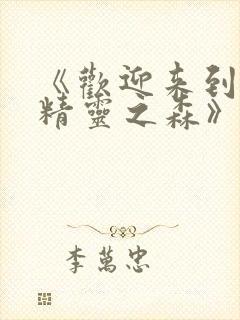 《歡迎来到
精靈之森》
李萬忠